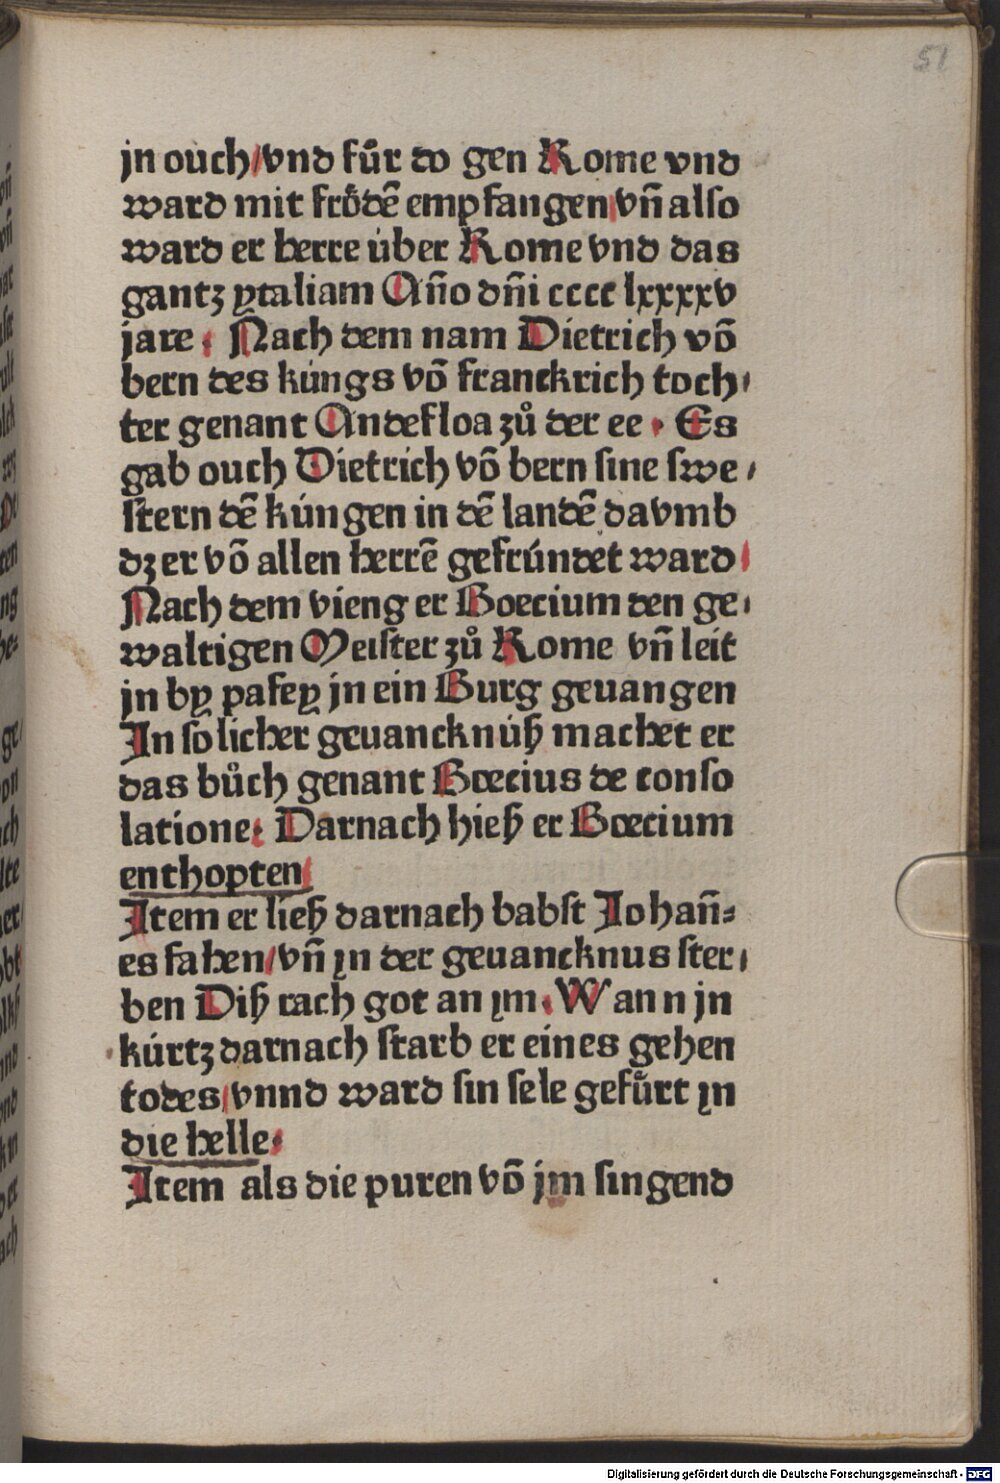 51
jn ouch/vnd fůr do gen Rome vnd
ward mit frödē empfangen/vn̄ also
ward er herre über Rome vnd das
gantz ytaliam An̄o dn̄i cccc lxxxxv
jare. Nach dem nam Dietrich vō
bern des kúngs vō franckrich toch⸗
ter genant Andefloa zů der ee. Es
gab ouch Dietrich vō bern sine swe⸗
stern dē kúngen in dē landē davmb
dz er vō allen herrē gefrúndet ward
Nach dem vieng er Boecium den ge⸗
waltigen Meister zů Rome vn̄ leit
jn by pafey jn ein Burg geuangen
In solicher geuancknúß machet er
das bůch genant Boecius de conso
latione: Darnach hieß er Boecium
enthopten
Item er ließ darnach babst Johan̄⸗
es fahen/vn̄ in der geuancknus ster⸗
ben Diß rach got an im. Wann jn
kúrtz darnach starb er eines gehen
todes/vnnd ward sin sele gefůrt in
die helle:
Item als die puren vō jm singend
Digitalisierung gefördert durch die Deutsche Forschungsgemeinschaft - DFG